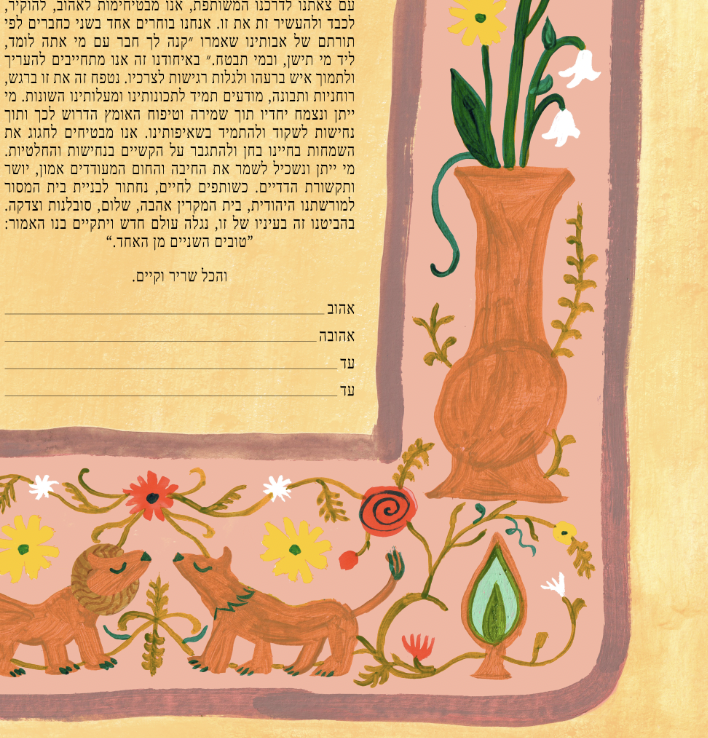 עם צאתנו לדרכנו המשותפת, אנו מבטיחימות לאהוב, להוקיר,
לכבד ולהעשיר זה את זו. אנחנו בוחרים אחד בשני כחברים לפי
תורתם של אבותינו שאמרו ״קנה לך חבר עם מי אתה לומד,
ליד מי תישן, ובמי תבטח.״ באיחודנו זה אנו מתחייבים להעריך
ולתמוך איש ברעהו ולגלות רגישות לצרכיו. נטפח זה את זו ברגש,
רוחניות ותבונה, מודעים תמיד לתכונותינו ומעלותינו השונות. מי
ייתן ונצמח יחדיו תוך שמירה וטיפוח האומץ הדרוש לכך ותוך
נחישות לשקוד ולהתמיד בשאיפותינו. אנו מבטיחים לחגוג את
השמחות בחיינו בחן ולהתגבר על הקשיים בנחישות והחלטיות.
מי ייתן ונשכיל לשמר את החיבה והחום המעודדים אמון, יושר
ותקשורת הדדיים. כשותפים לחיים, נחתור לבניית בית המסור
למורשתנו היהודית, בית המקרין אהבה, שלום, סובלנות וצדקה.
בהביטנו זה בעיניו של זו, נגלה עולם חדש ויתקיים בנו האמור:
״טובים השניים מן האחד.״
והכל שריר וקיים.
אהוב
אהובה
עד
עד